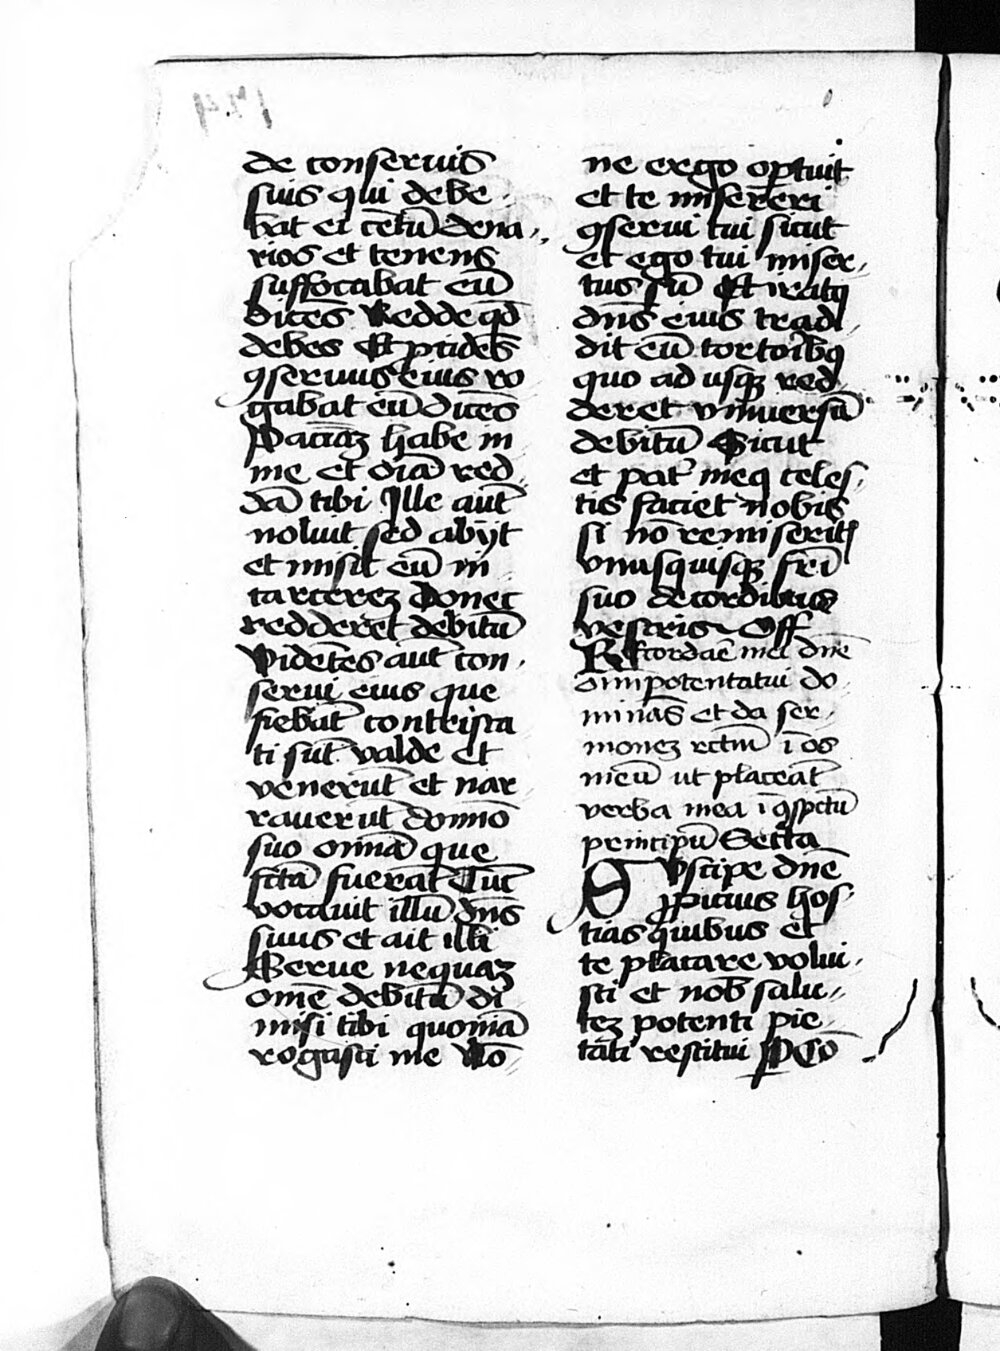 de conseruis
suis qui debe
bat ei cētū dena
rios et tenens
suffocabat eū
dicēs Redde qd̄
debes Et ꝓcidēs
ꝯseruus eius ro
gabat eū dicēs
Paciāꝫ habe in
me et oīa red
dā tibi Ille aut̄
noluit sed abijt
et misit eū in
carcereꝫ donec
redderet debitū
Vidētes aut̄ con
serui eius que
fiebāt contrista
ti sūt valde et
venerūt et nar
rauerūt domīo
suo omīa que
fctā fuerāt Tūc
vocauit illū dn̄s
suus et ait illi
Serue nequaꝫ
omē debitū di
misi tibi quoniā
rogasti me Nō
ne ergo oꝑtuit
et te misereri
ꝯserui tui sicut
et ego tui miser
tus sū Et iratꝰ
dn̄s eius tradi
dit eū tortoribꝰ
quo ad usqꝫ red
deret vniuersū
debitū Sicut
et pat̄ meꝰ celes
tis faciet nobis
si nō remiseritꝭ
vnusquisqꝫ fr̄i
suo de cordibus
vestris Off
Recordae mei dn̄e
omīpotentatui do
minās et da ser
moneꝫ rctm̄ ī os
meū ut placeāt
verba mea ī ꝯspctū
principū Secta
Suscipe dn̄e
ꝓpicius hos
tias quibus et
te placare volui
sti et nob̄ salu
teꝫ potenti pie
tati restitui P Cō